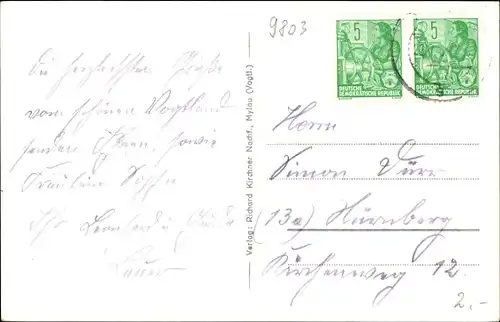 9803
5
DEUTSCHE
DEMOKRATISCHE REPUBLIK
5
DEUTSCHE
DEMOKRATISCHE REPUBLIK
Die herzlichsten Grüße
vom schönen Vogtland
sendet Ihnen, sowie
Fräulein
Ihr Leonhard u.
Verlag: Richard Kirchner Nachf., Mylau (Vogtl.)
Herrn
Simon Dürr
(13a) Nürnberg
Kirchenweg 12
2.-